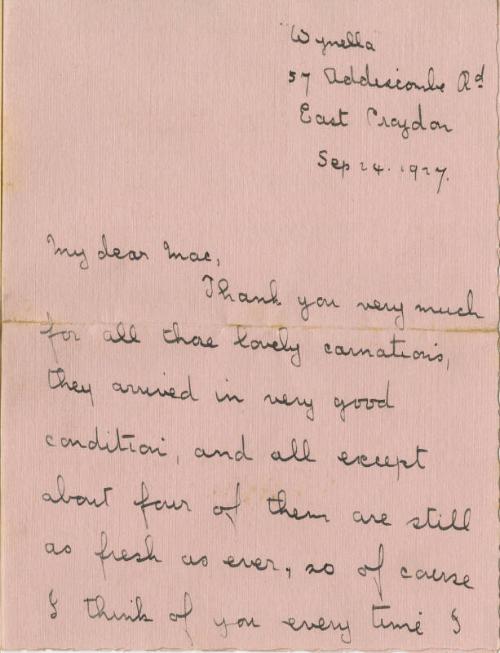 "Wynella
57 Addiscombe Rd
East Croydon
Sep 24. 1927.
My dear Mac,
Thank you very much
for all those lovely carnations,
they arrived in very good
condition, and all except
about four of them are still
as fresh as ever, so of cause
I think of you every time I